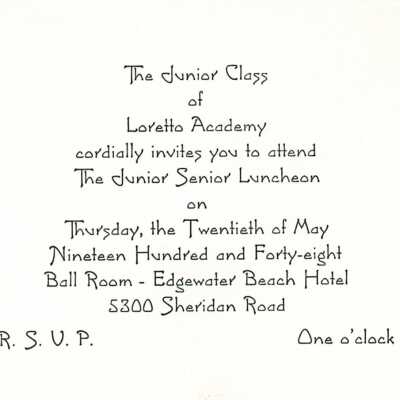 The Junior Class
of
Loretto Academy
cordially invites you to attend
The Junior Senior Luncheon
on
Thursday, the Twentieth of May
Nineteen Hundred and Forty-eight
Ball Room - Edgewater Beach Hotel
5300 Sheridan Road
R. S. V. P. One o'clock